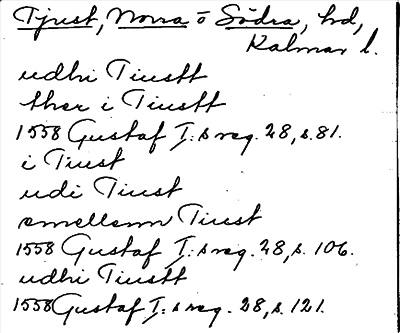 Tjust, Norra o Södra, hd,
Kalmar l.
udhi Tiustt
ther i Tiustt
1558 Gustaf I:s reg. 28, s. 81.
i Tiust
udi Tiust
emellenn Tiust
1558 Gustaf I:s reg. 28, s. 106.
udhi Tiustt
1558 Gustaf I:s reg. 28, s. 121.